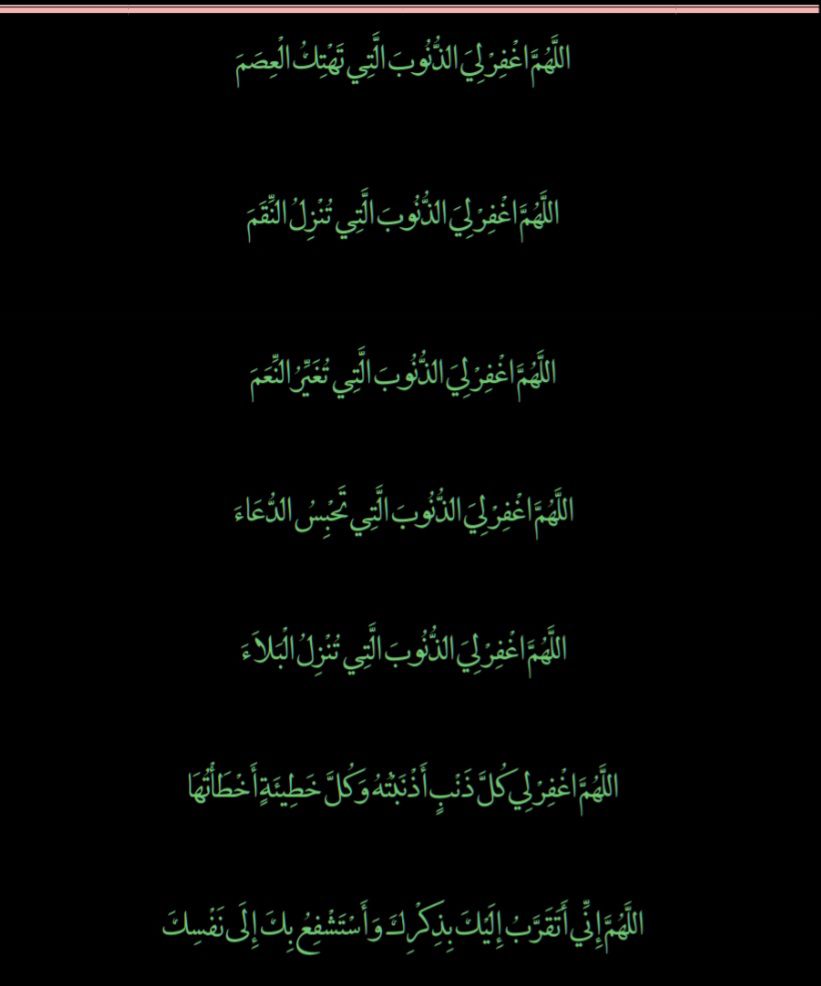 اللَّهُمَّ اغْفِرْ لِيَ الذُّنُوبَ الَّتِي تَهْتِكُ الْعِصَمَ
اللَّهُمَّ اغْفِرْ لِيَ الذُّنُوبَ الَّتِي تُنْزِلُ النِّقَمَ
اللَّهُمَّ اغْفِرْ لِيَ الذُّنُوبَ الَّتِي تُغَيِّرُ النِّعَمَ
اللَّهُمَّ اغْفِرْ لِيَ الذُّنُوبَ الَّتِي تَحْبِسُ الدُّعَاءَ
اللَّهُمَّ اغْفِرْ لِيَ الذُّنُوبَ الَّتِي تُنْزِلُ الْبَلاَءَ
اللَّهُمَّ اغْفِرْ لِي كُلَّ ذَنْبٍ أَذْنَبْتُهُ وَكُلَّ خَطِيئَةٍ أَخْطَأْتُهَا
اللَّهُمَّ إِنِّي أَتَقَرَّبُ إِلَيْكَ بِذِكْرِكَ وَأَسْتَشْفِعُ بِكَ إِلَى نَفْسِكَ